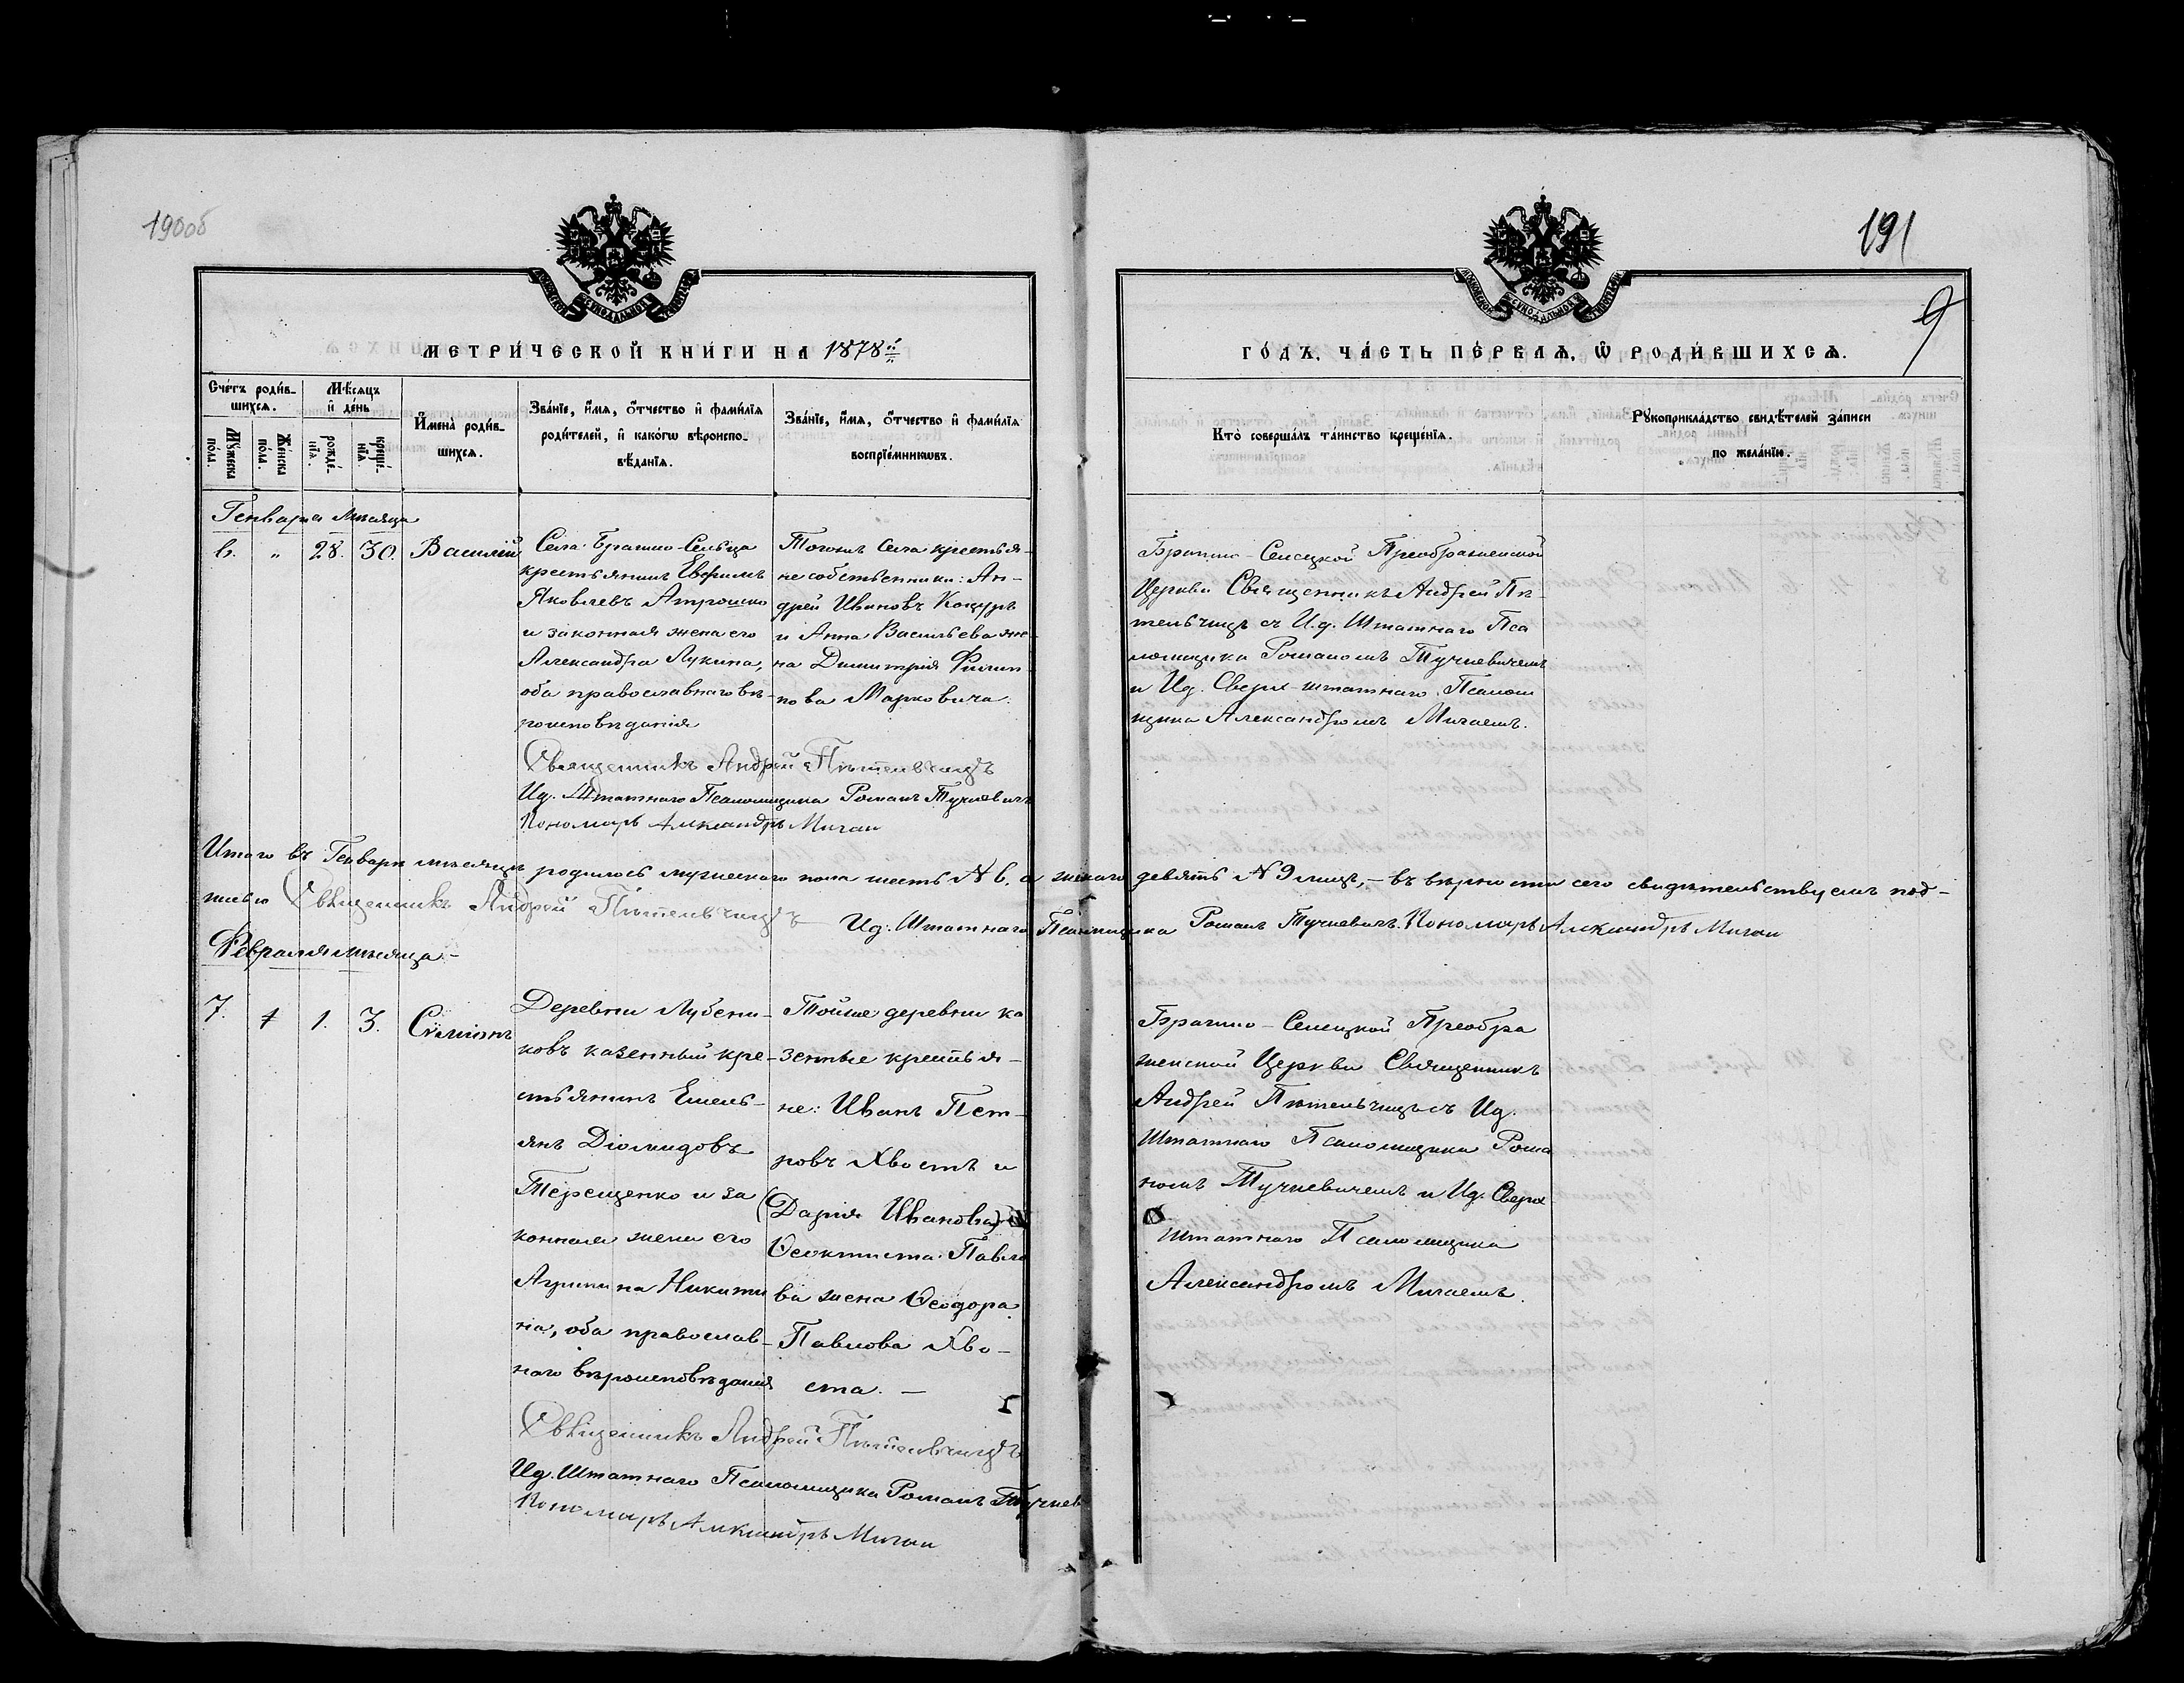 190об
191
9
МЕТРИ́ЧЕСКОЙ КНИ́ГИ НА 1878й
ГО́ДЪ, ЧА́СТЬ ПЕ́РВАѦ, Ѽ РОДИ́ВШИХСѦ.
Сче́тъ роди́в-
шихсѧ.
Мѣ́сѧцъ
и҆ де́нь
Мꙋ́жеска
по́ла.
Же́нска
по́ла.
рожде́-
нїѧ.
креще́-
нїѧ
И҆мена̀ роди́в-
шихсѧ.
Зва́нїе, и҆́мѧ, ѻ҆́тчество и҆ фами́лїѧ
роди́телей, и҆ како́гѡ вѣроиспо-
вѣ́данїѧ.
Зва́нїе, и҆́мѧ, ѻ҆́тчество и҆ фами́лїѧ
воспрїе́мникѡвъ.
Кто̀ соверша́лъ та́инство креще́нїѧ.
Рꙋкоприкла́дство свидѣ́телей за́писи
по жела́нїю.
Генваря месяца
6. " 28. 30. Василій
Села Брагино-Сельца
крестьянинъ Евфимъ
Яковлевъ Атрошко
и законная жена его
Александра Лукина,
оба православнаго вѣ-
роисповѣданія
Тогожъ Села крестья-
не собственники: Ан-
дрей Ивановъ Коцуръ
и Анна Васильева же-
на Димитрія Филип-
пова Марковича.
Брагино-Селецкой Преображенской
Церкви Священникъ Андрей Пѣ-
тельчицъ съ И.д. Штатнаго Пса
ломщика Романомъ Тучкевичемъ
и Ид. Сверх-штатнаго Псалом
щика Александромъ Мигаемъ.
Священникъ Андрей Пѣтельчицъ
Ид. Штатнаго Псаломщика Романъ Тучкевичъ
Пономарь Александръ Мигай
Итого въ Генварѣ месяцѣ родилось мужескаго пола шесть № 6, а женскаго девять № 9 лицъ, – въ вѣрности сего свидѣтельствуемъ под-
писью Священникъ Андрей Пѣтельчицъ Ид. Штатнаго Псаломщика Романъ Тучкевичъ. Пономарь Александръ Мигай
Февраля месяца –
7. 1. 3. Сѵмеонъ
Деревни Лубени-
ковъ казенный кре-
стьянинъ Емель-
янъ Діомидовъ
Терещенко и за
конная жена его
Агрипина Никити
на, оба православ-
наго вѣроисповѣданія
Тойже деревни ка
зенные крестья-
не: Иванъ Пет-
ровъ Хвостъ и
(Дарія Иванова)
Ѳеоктиста Павло
ва жена Ѳеодора
Павлова Хво-
ста. –
Брагино-Селецкой Преобра
женской Церкви Священникъ
Андрей Пѣтельчицъ съ Ид.
Штатнаго Псаломщика Рома
номъ Тучкевичемъ и Ид. Сверх
штатнаго Псаломщика
Александромъ Мигаемъ.
Священникъ Андрей Пѣтельчицъ
Ид. Штатнаго Псаломщика Романъ Тучкев
Пономарь Александръ Мигай